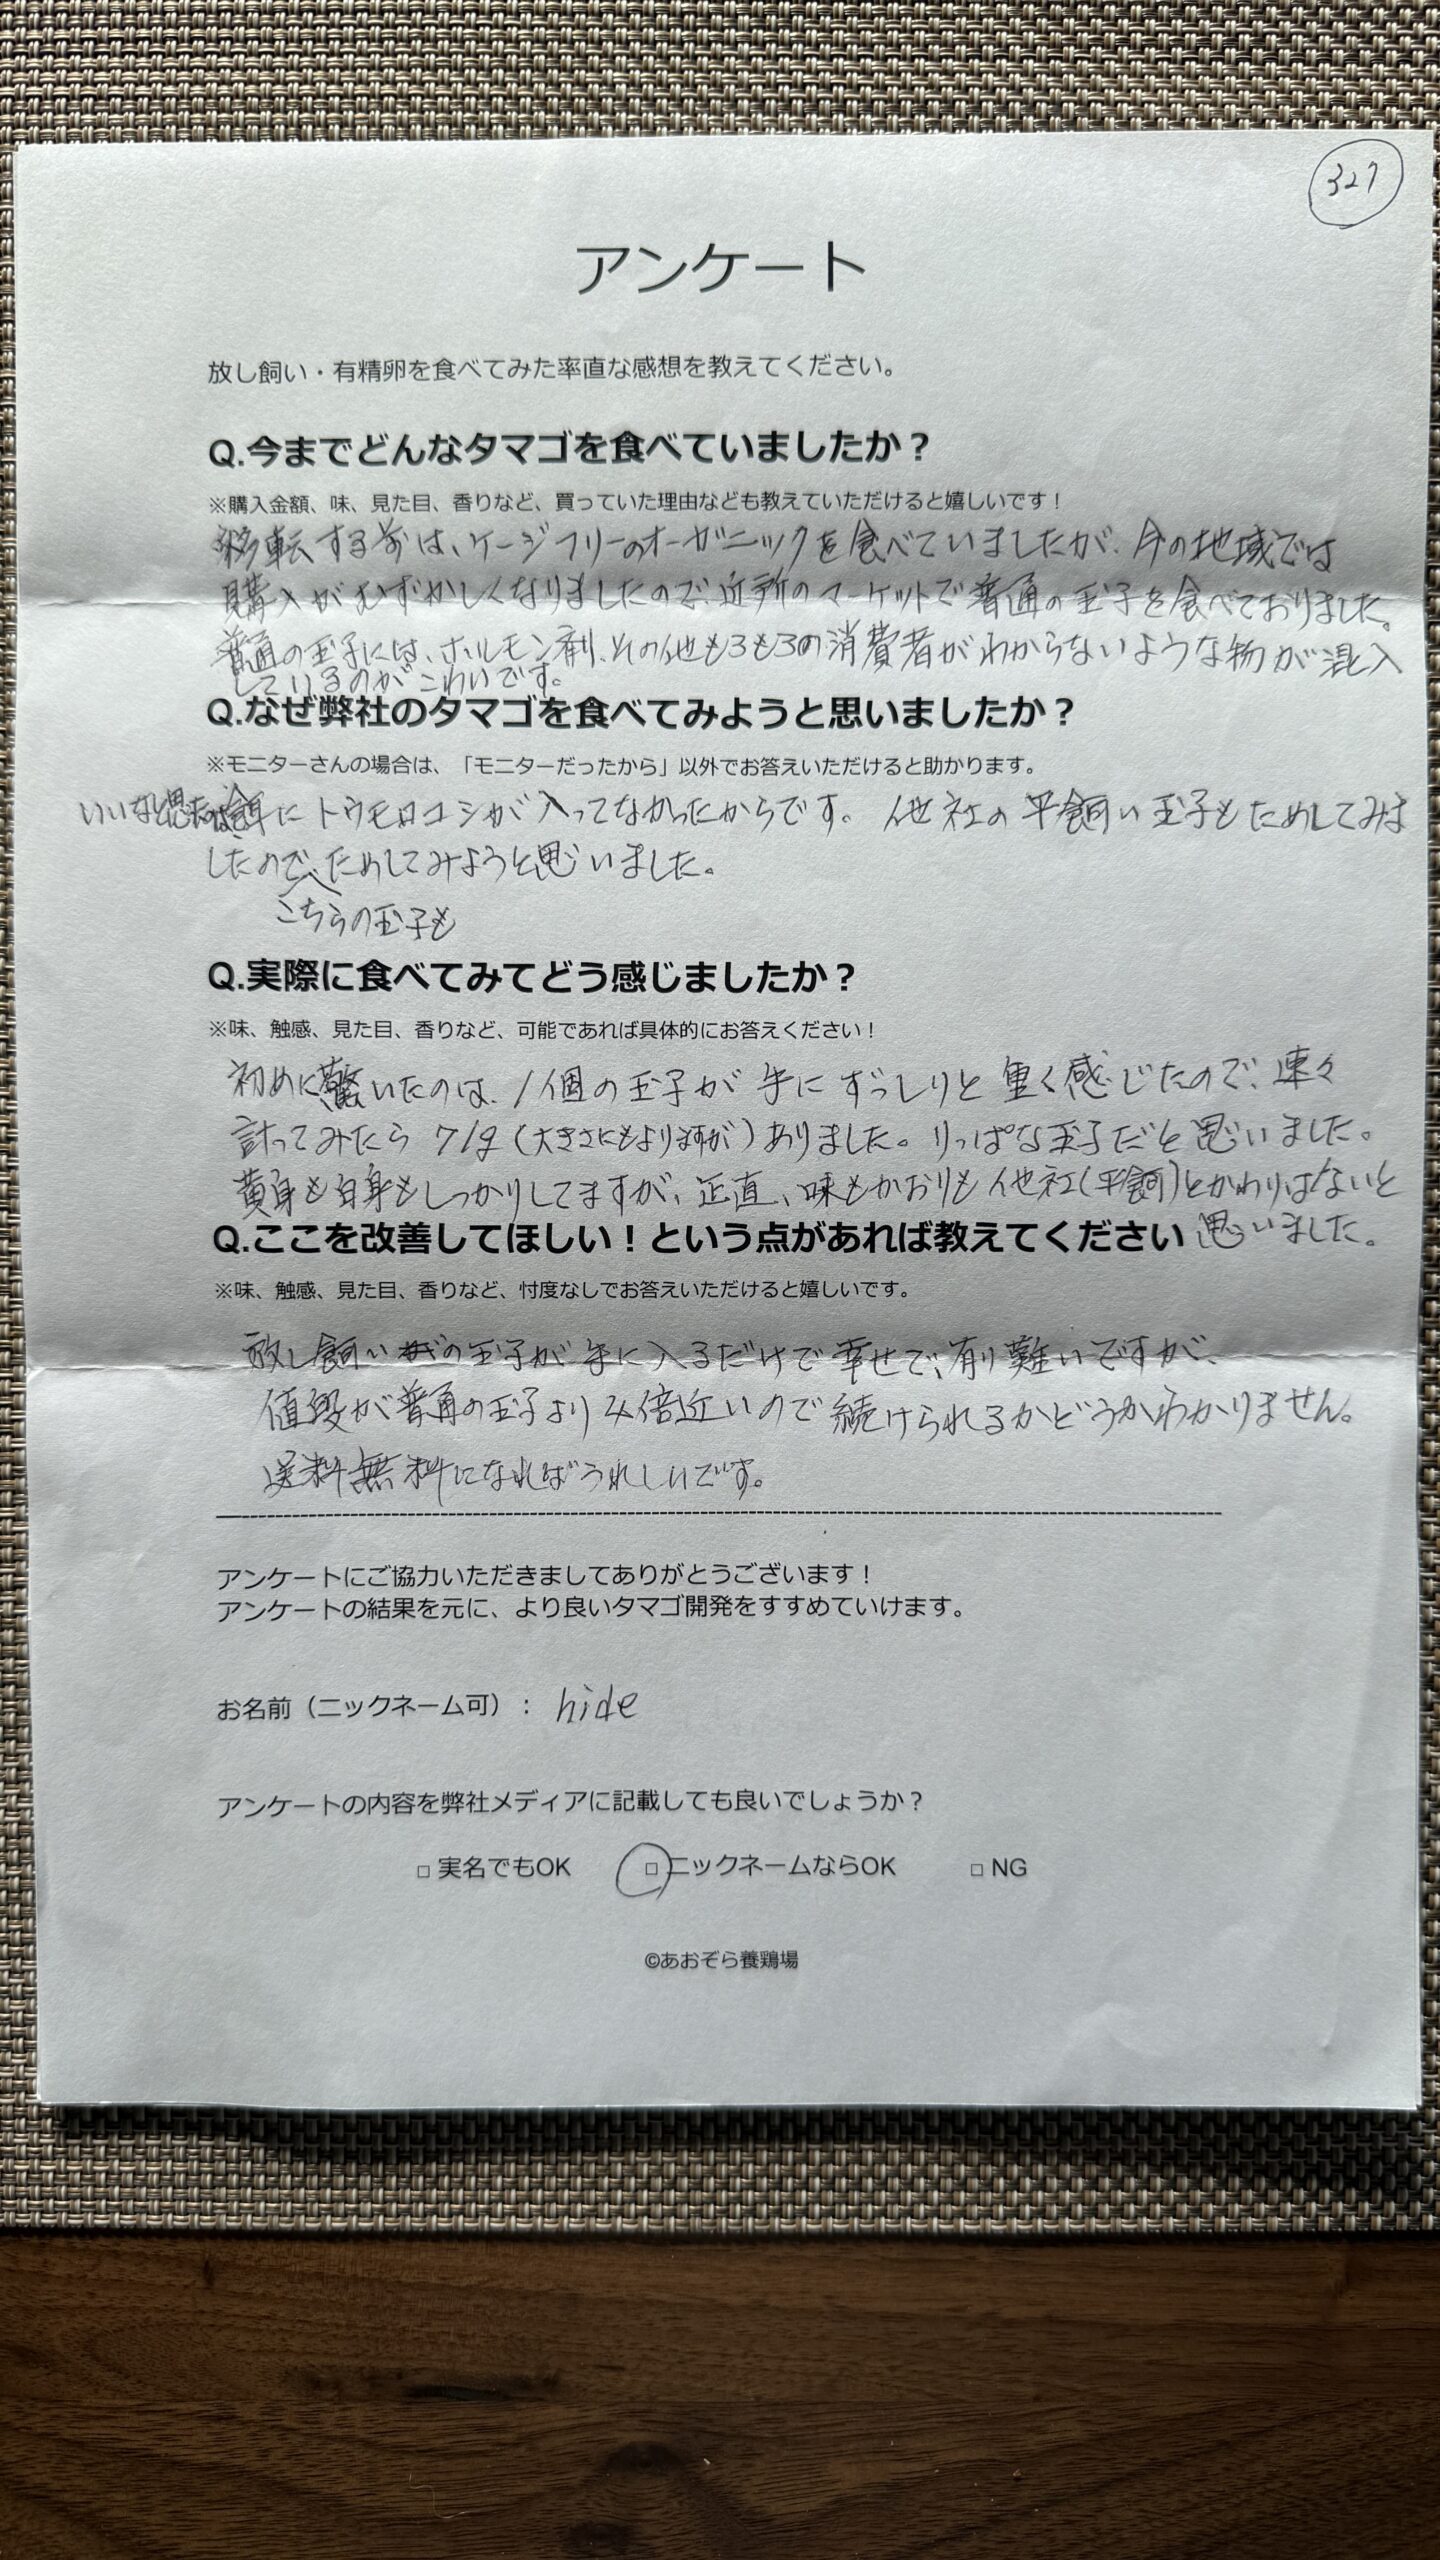 327
アンケート
放し飼い・有精卵を食べてみた率直な感想を教えてください。
Q.今までどんなタマゴを食べていましたか？
※購入金額、味、見た目、香りなど、買っていた理由なども教えていただけると嬉しいです！
移転する前は、ケージフリーのオーガニックを食べていましたが、今の地域では
購入がむずかしくなりましたので、近所のマーケットで普通の玉子を食べておりました。
普通の玉子には、ホルモン剤、その他もろもろの消費者がわからないような物が混入
しているのがこわいです。
Q.なぜ弊社のタマゴを食べてみようと思いましたか？
※モニターさんの場合は、「モニターだったから」以外でお答えいただけると助かります。
いいなと思ったのは餌にトウモロコシが入ってなかったからです。他社の平飼い玉子もためしてみま
したので、ためしてみようと思いました。
こちらの玉子も
Q.実際に食べてみてどう感じましたか？
※味、触感、見た目、香りなど、可能であれば具体的にお答えください！
初めに驚いたのは、1個の玉子が手にずっしりと重く感じたので、速々
計ってみたら71g（大きさにもよりますが）ありました。りっぱな玉子だと思いました。
黄身も白身もしっかりしてますが、正直、味もかおりも他社(平飼)とかわりはないと
思いました。
Q.ここを改善してほしい！という点があれば教えてください
※味、触感、見た目、香りなど、忖度なしでお答えいただけると嬉しいです。
放し飼いの玉子が手に入るだけで幸せで、有り難いですが、
値段が普通の玉子より4倍近いので続けられるかどうかわかりません。
送料無料になればうれしいです。
アンケートにご協力いただきましてありがとうございます！
アンケートの結果を元に、より良いタマゴ開発をすすめていけます。
お名前（ニックネーム可）： hide
アンケートの内容を弊社メディアに記載しても良いでしょうか？
□ 実名でもOK □ ニックネームならOK □ NG
©あおぞら養鶏場